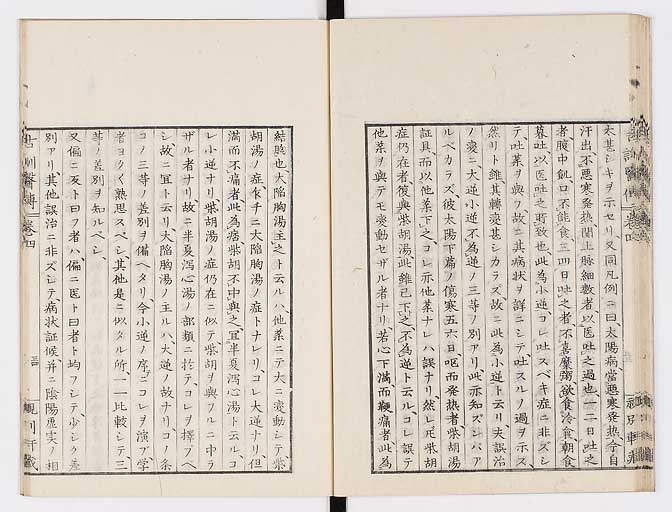 太甚シキヲ示セリ又同凡例ニ曰太陽病、當惡寒發熱、今自
汗出、不惡寒發熱、関上脉細數者、以医吐之過也、一二日吐之
者、腹中飢、口不能食、三四日吐之者、不喜糜粥、欲食冷食、朝食
暮吐、以医吐之所致也、此為小逆、コレ吐スベキ症ニ非ズシ
テ吐薬ヲ與フ故ニ其病状ヲ詳ニシテ吐スルノ過ヲ示ス
然リト雖其轉變甚シカラズ故ニ此為小逆ト云リ夫誤治
ノ変ニ大逆小逆不為逆ノ三等ノ別アリ此亦知ズンバア
ルベカラズ、彼太陽下篇ノ傷寒五六日、呕而発熱者、柴胡湯
証具、而以他薬下之、コレ亦他薬ナレハ誤ナリ、然レ𪜈柴胡
症仍在者、復與柴胡湯、此雖已下之、不為逆ト云ル、コレ誤テ
他薬ヲ與テモ変動セザル者ナリ、若心下満而鞕痛者、此為
結胸也、大陥胸湯主之ト云ルハ、他薬ニテ大ニ変動シテ、柴
胡湯ノ症、食チニ大陥胸湯ノ症トナレリ、コレ大逆ナリ、但
満而不痛者、此為痞、柴胡不中與之、宜半夏瀉心湯ト云ル、コ
レ小逆ナリ、柴胡湯ノ症仍在ニ似テ柴胡ヲ與フルニ中ラ
ザル者ナリ、故ニ半夏瀉心湯ノ部類ニ於テコレヲ擇ブヘ
シ、故ニ宜ト云リ、大陥胸湯ノ主ルハ、大逆ノ故ナリ、コノ条
コノ三等ノ差別ヲ備ヘタリ、今小逆ノ序コヽニコレヲ演ブ、学
者ヨク〱熟思スベシ、其他是ニ似タル所、一一比較シテ、三
等ノ差別ヲ知ルベシ、
又偏ニ反ト曰フ者ハ、偏ニ医ト曰者ト均フシテ、少シク差
別アリ、其他誤治ニ非ズシテ、病状証候并ニ陰陽虚実ノ相